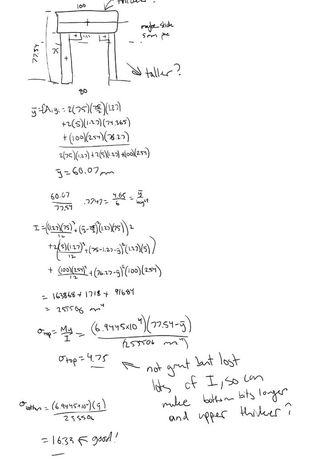 thicker?
100
maybe slide
5mm
77.54
75
taller?
80
ȳ = ΣA.y. = 2(75)(75/2)(1.27)
+2(5)(1.27)(74.365)
+(100)(2.54)(76.27)
2(75)(1.27)+2(5)(1.27)+(100)(2.54)
ȳ = 60.07 mm
60.07/77.54 .7747 = 4.65/6 = ȳ/
I = ((1.27)(75)³/12 + (ȳ-75/2)²(1.27)(75))2
+2((5)(1.27)³/12 + (75-1.27-ȳ)²(1.27)(5))
+ (100)(2.54)³/12 + (76.27-ȳ)²(100)(2.54)
= 163868 + 1718 + 91684
= 255506 mm⁴
σtop = My/I = (6.9445x10⁴)(77.54-ȳ)/(255506 mm⁴)
σtop = 4.75
not great but lost
lots of I, so can
make bottom bits longer
and upper thicker?
σbottom = (6.9445x10⁴)(ȳ)/255506
= 16.33 good!